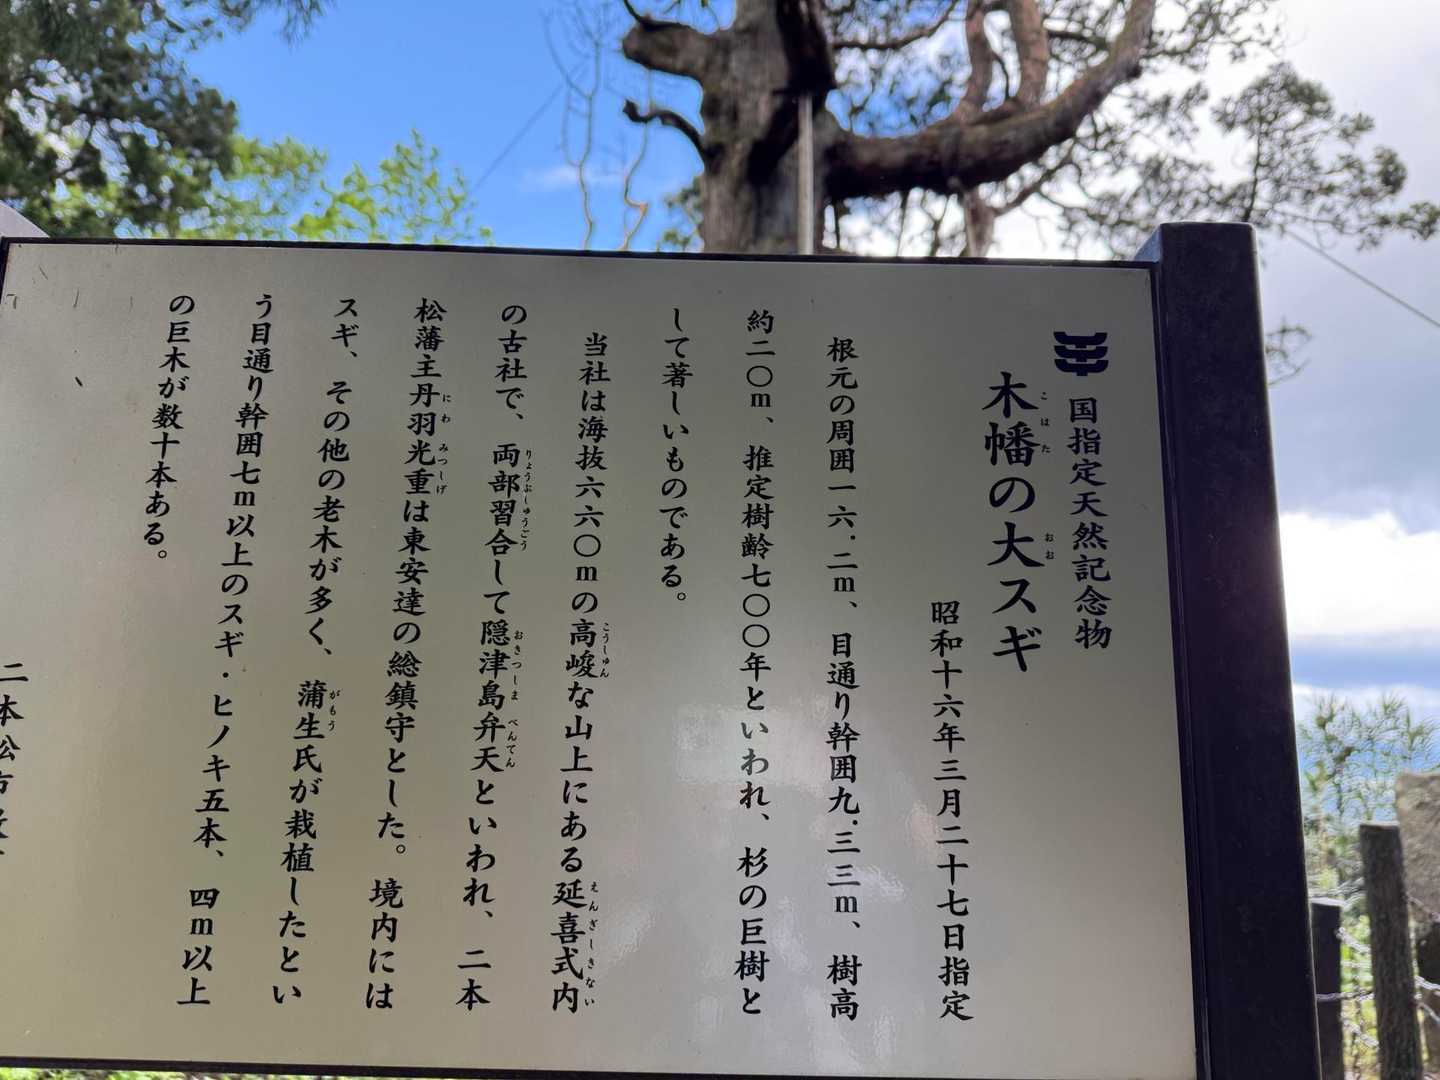 国指定天然記念物
木幡の大スギ
こはた
おお
昭和十六年三月二十七日指定
根元の周囲一六.二m、目通り幹囲九.三三m、樹高
約二〇m、推定樹齢七〇〇年といわれ、杉の巨樹と
して著しいものである。
当社は海抜六六〇mの高峻な山上にある延喜式内
こうしゅん
えんぎしきない
の古社で、両部習合して隠津島弁天といわれ、二本
りょうぶしゅうごう
おきつしま
べんてん
松藩主丹羽光重は東安達の総鎮守とした。境内には
にわ
みつしげ
スギ、その他の老木が多く、蒲生氏が栽植したとい
がもう
う目通り幹囲七m以上のスギ・ヒノキ五本、四m以上
の巨木が数十本ある。
二本松市